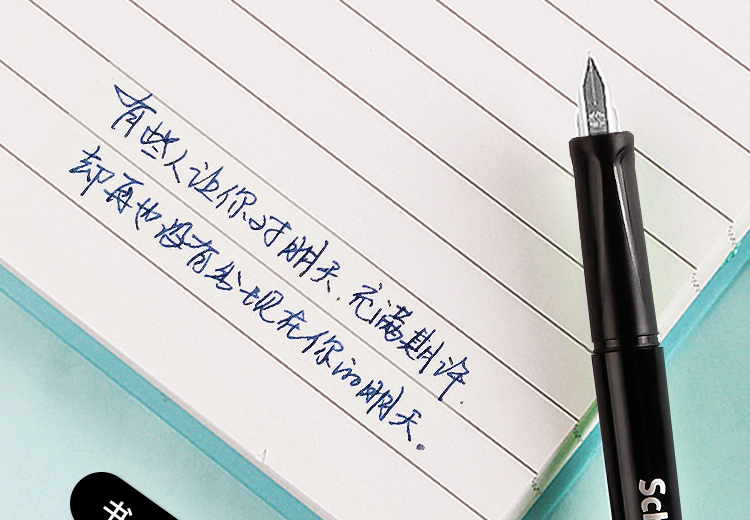 有些人让你对明天.充满期许.
却再也没有出现在你的明天.
书
Sch